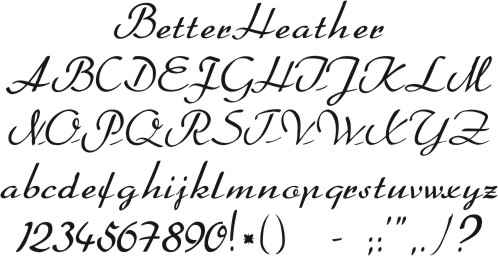 BetterHeather
ABCDEFGHIJKLM
NOPQRSTUVWXYZ
abcdefghijklmnopqrstuvwxyz
1234567890!*() - ;:'",./?